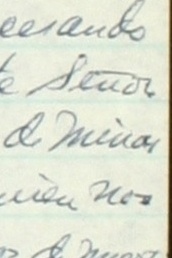 cesando
te Señor
de Minas
uien nos